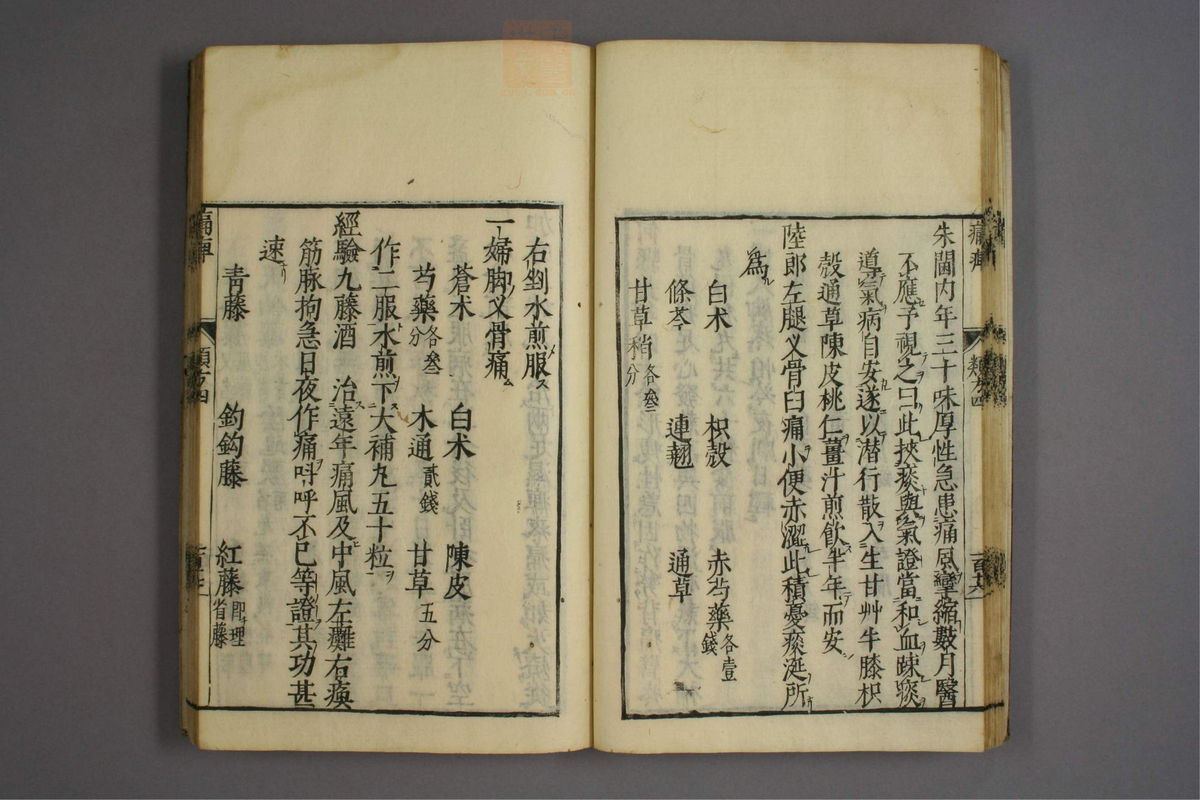 朱閫内年三十味厚性急患痛風攣縮數月醫
不應予視之曰此挾痰與氣證當和血踈痰
導氣病自安遂以潜行散入生甘艸牛膝枳
殼通草陳皮桃仁薑汁煎飲半年而安
陸郎左腿义骨臼痛小便赤澀此積憂痰涎所
爲
白术 枳殼 赤芍藥各壹錢
條芩 連翹 通草
甘草稍各叄分
類方四
右剉水煎服
一婦脚义骨痛
蒼术 白术 陳皮
芍藥各叄分 木通貳錢 甘草五分
作二服水煎下大補丸五十粒
經驗九藤酒 治遠年痛風及中風左癱右瘓
筋脉拘急日夜作痛呌呼不已等證其功甚
速
青藤 鈎鈎藤 紅藤即理省藤